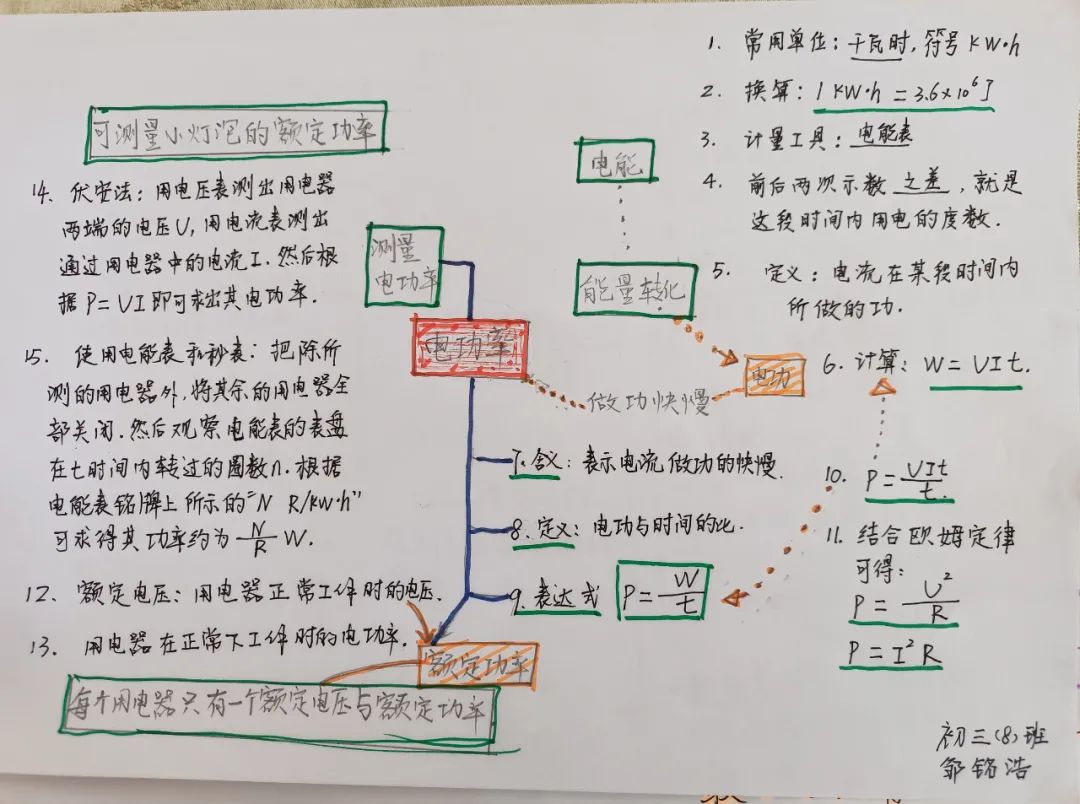 可测量小灯泡的额定功率
14. 伏安法：用电压表测出用电器
两端的电压U，用电流表测出
通过用电器中的电流I．然后根
据P=UI即可求出其电功率．
15. 使用电能表和秒表：把除所
测的用电器外，将其余的用电器全
部关闭．然后观察电能表的表盘
在t时间内转过的圈数n．根据
电能表铭牌上所示的"N R/kW·h"
可求得其功率约为 N/R W.
12. 额定电压：用电器正常工作时的电压．
13. 用电器在正常下工作时的电功率．
每个用电器只有一个额定电压与额定功率
测量
电功率
电功率
做功快慢
7. 含义：表示电流做功的快慢．
8. 定义：电功与时间的比．
9. 表达式 P=W/t
额定功率
电能
能量转化
电功
1. 常用单位：千瓦时，符号 KW·h
2. 换算：1 KW·h = 3.6×10⁶J
3. 计量工具：电能表
4. 前后两次示数之差，就是
这段时间内用电的度数．
5. 定义：电流在某段时间内
所做的功．
6. 计算：W=UIt.
10. P=UIt/t.
11. 结合欧姆定律
可得：
P=U²/R
P=I²R
初三(8)班
邹铭浩